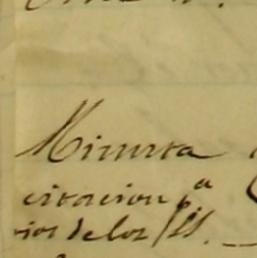 Minuta
citacion pa
rios de los SS.